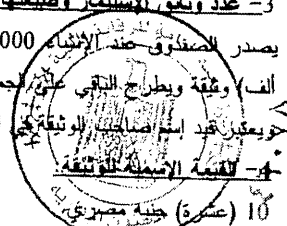 3- عدد وثائق الاستثمار و
يصدر الصندوق عند الإنشاء 000
ألف) وثيقة ويطرح الباقي على
ويعتبر قيد إسم صاحب الوثيقة في
4- القيمة الإسمية للوثيقة
10 (عشرة) جنيه مصري